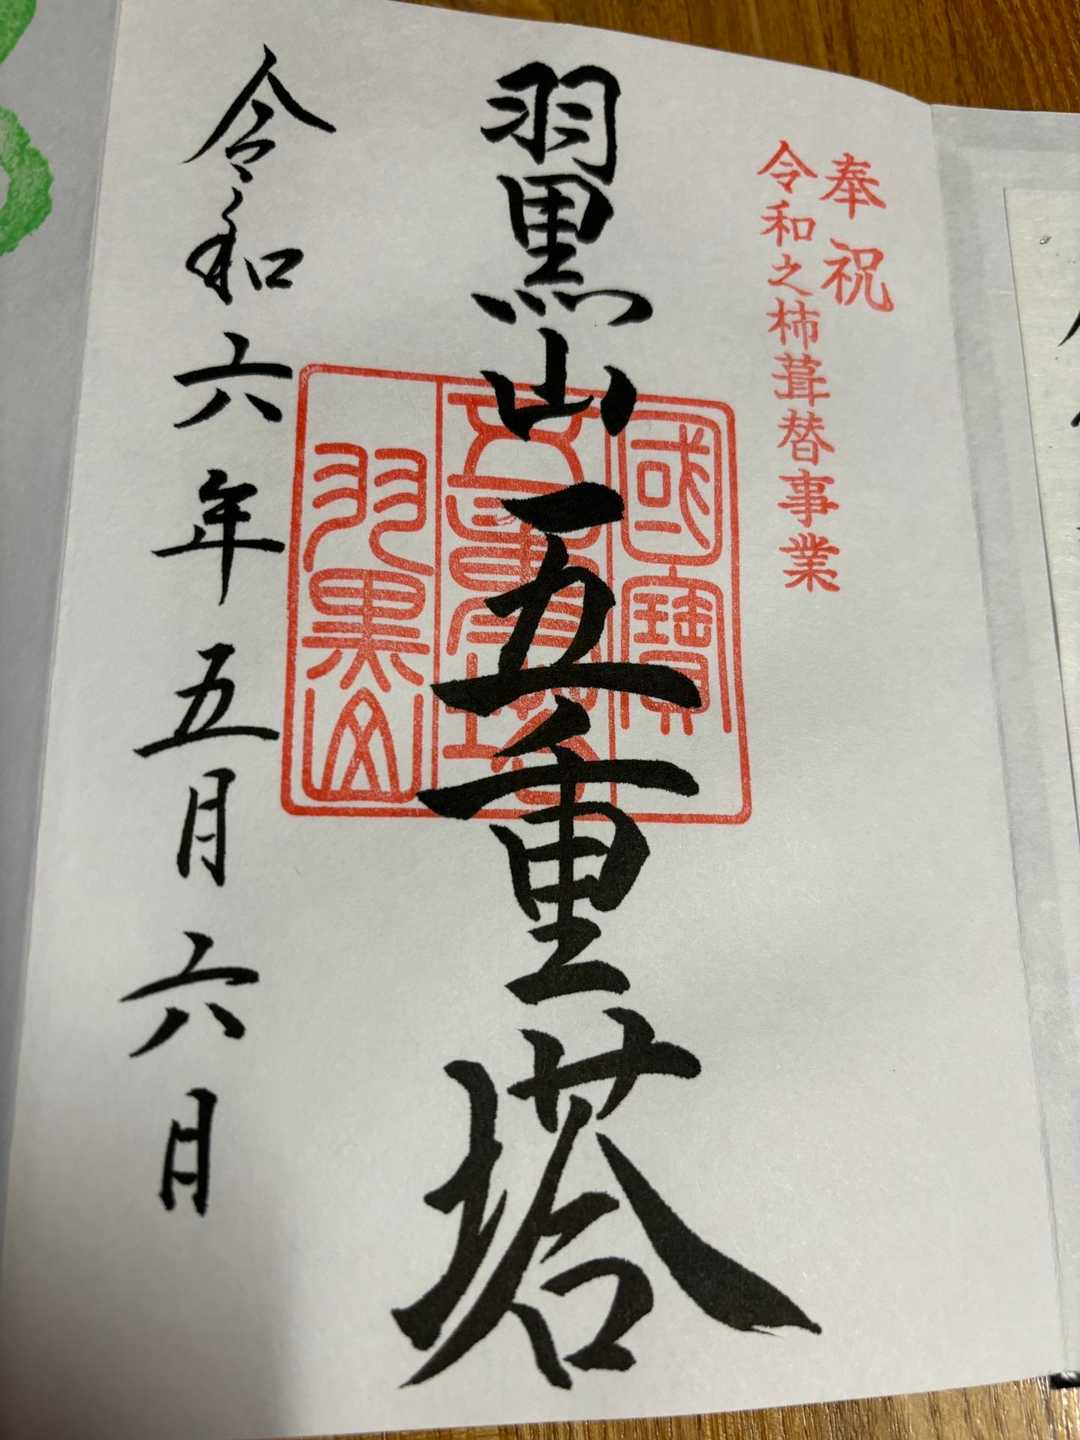 奉祝
令和之杮葺替事業
羽黒山五重塔
國寶
五重塔
羽黒山
令和六年五月六日